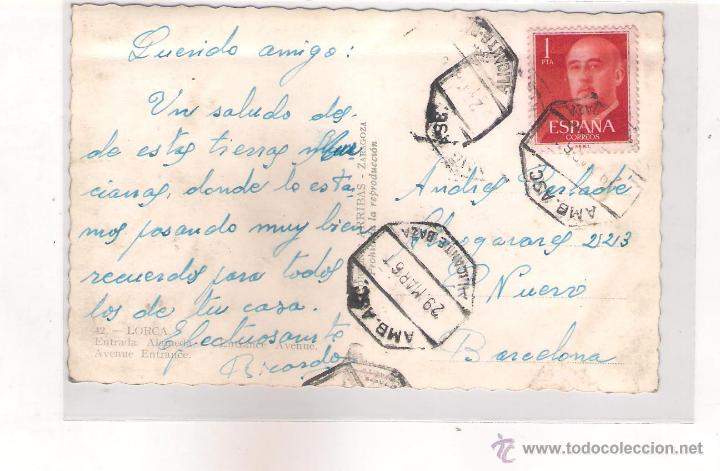 Querido amigo:
Un saludo des-
de estas tierras Mur
cianas, donde lo esta
mos pasando muy bien
recuerdos para todos
los de tu casa.
Efectuosamte
Ricardo
42. — LORCA.
Entrada Alameda. Entrance Avenue.
Avenue Entrance.
ARRIBAS - ZARAGOZA
Prohibida la reproducción
1
PTA
ESPAÑA
CORREOS
Andres
223
P. Nuevo
Barcelona
AMB. ASC.
29. MAR 61
ALICANTE-BAZA
AMB. ASC.
todocoleccion
www.todocoleccion.net